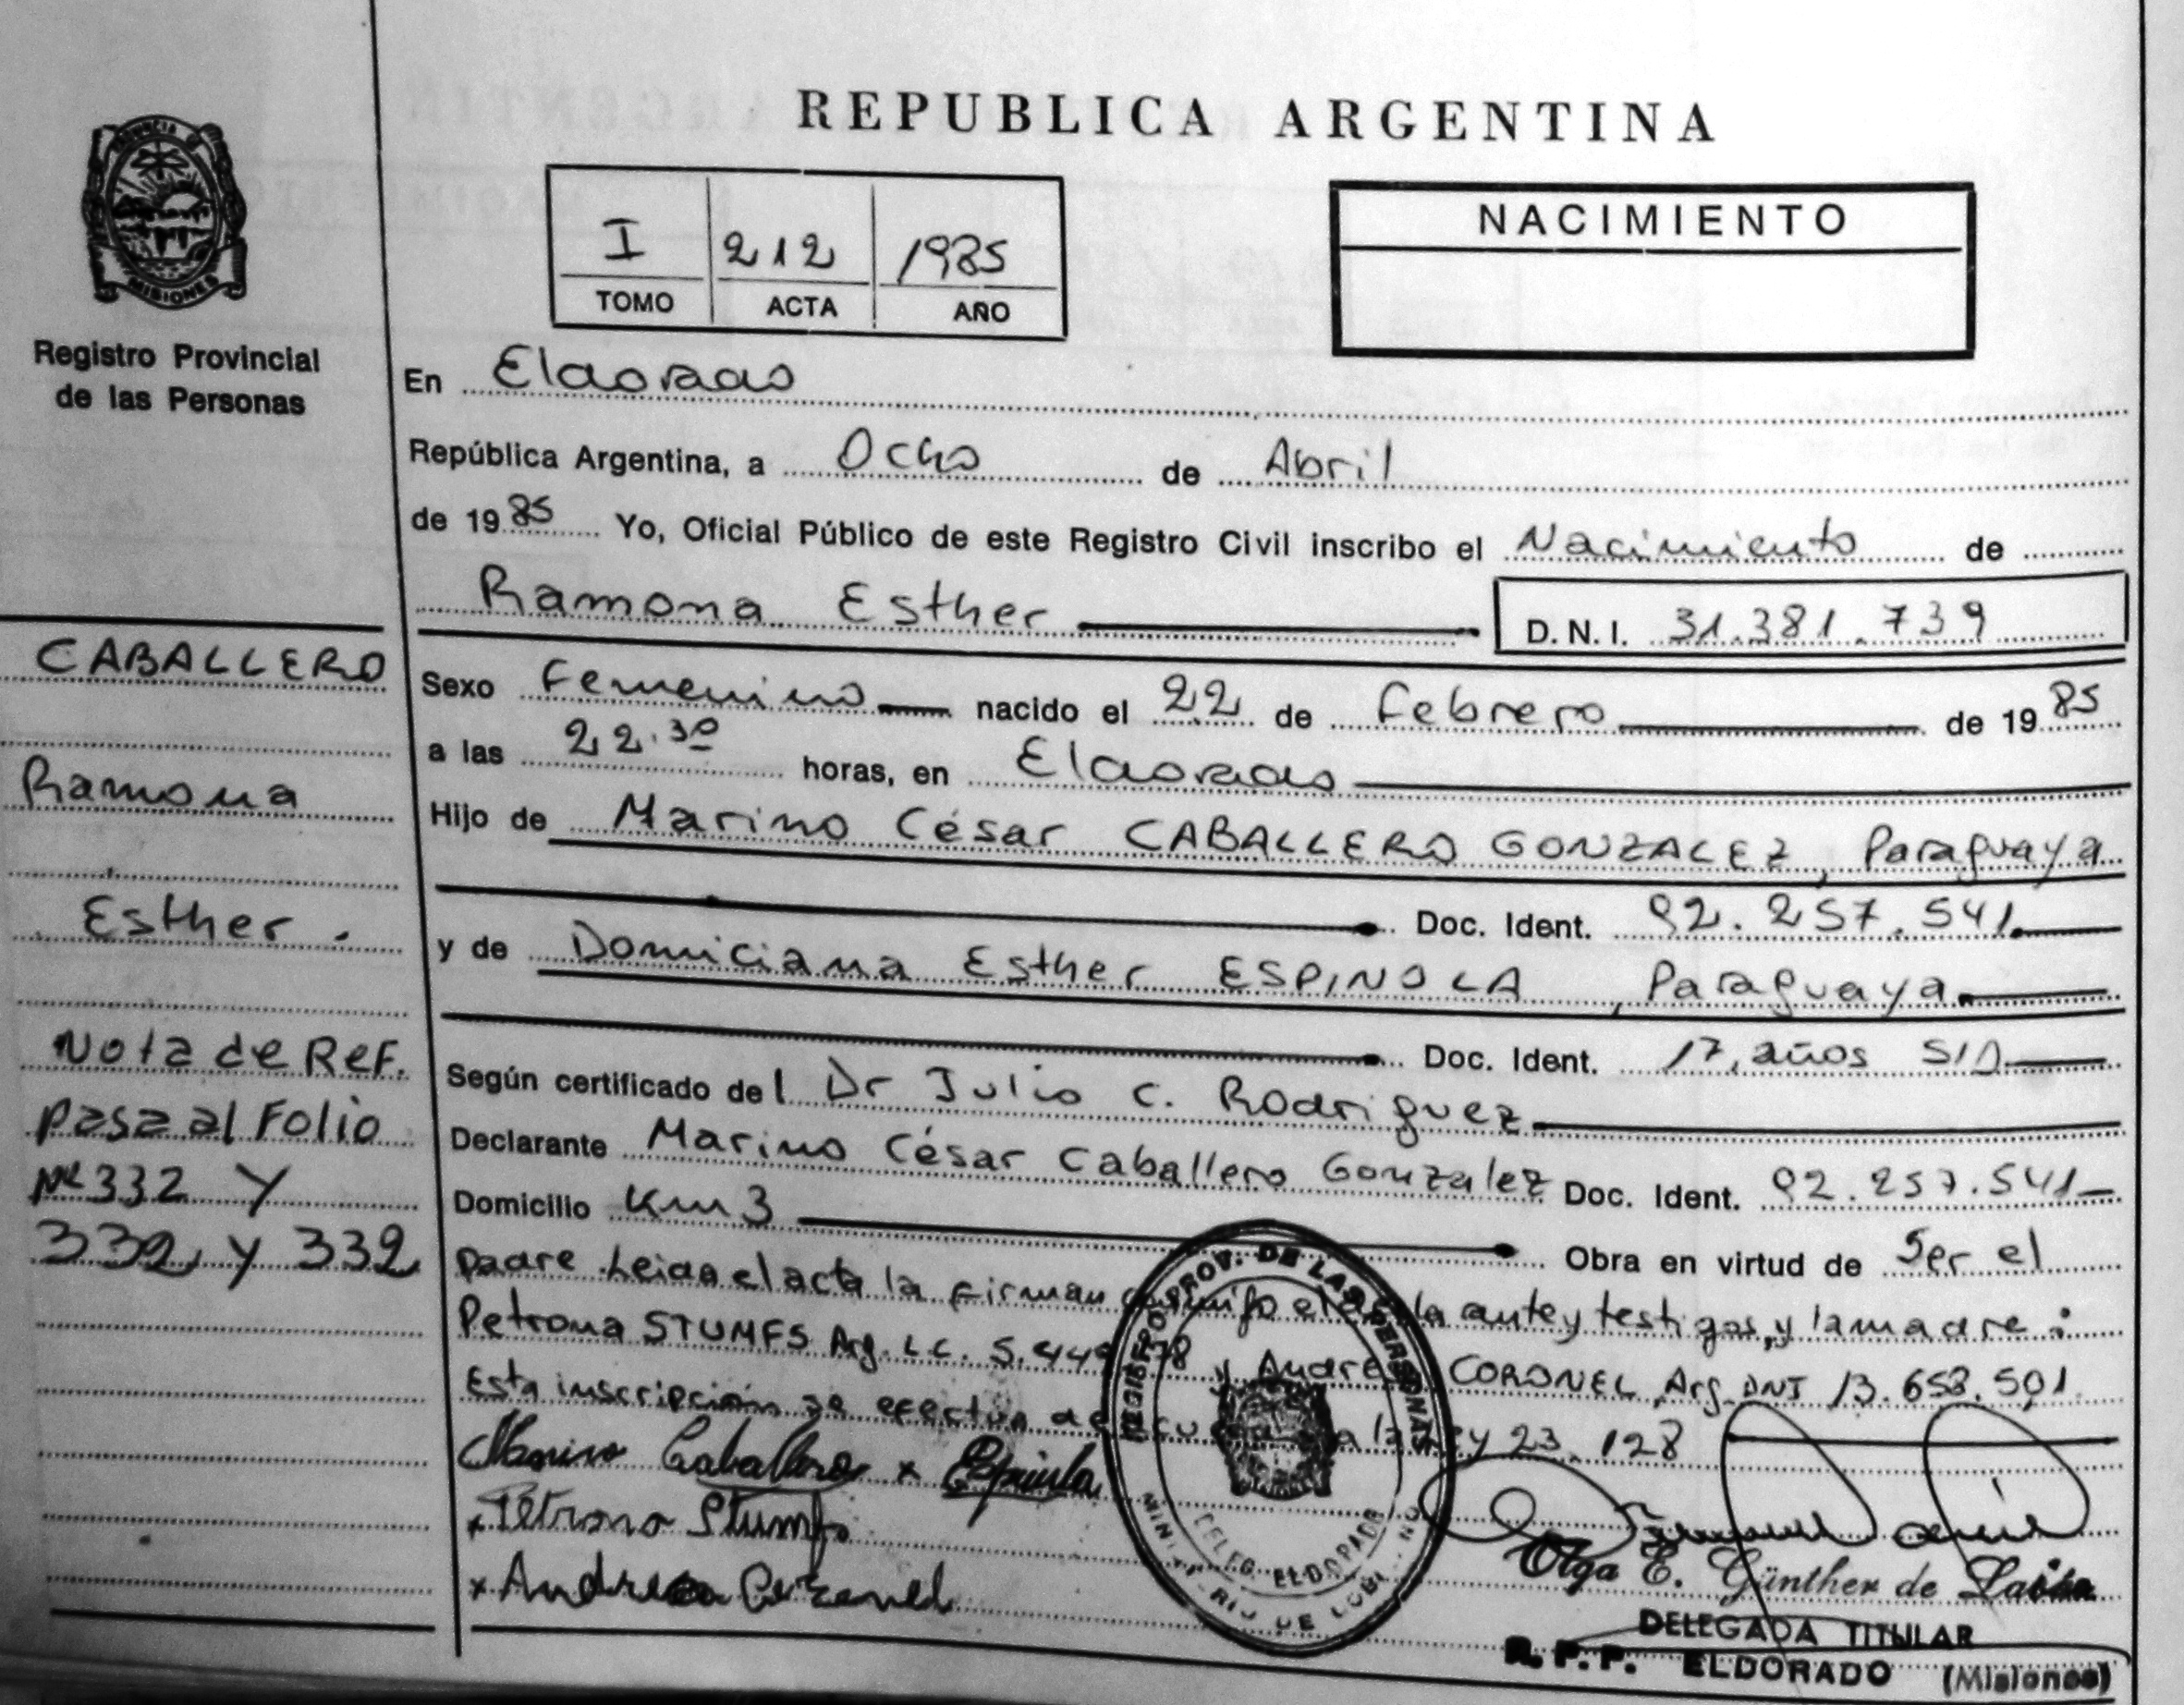 REPUBLICA ARGENTINA
PROVINCIA DE
MISIONES
Registro Provincial
de las Personas
I 212 1985
TOMO ACTA AÑO
NACIMIENTO
En Eldorado
República Argentina, a Ocho de Abril
de 1985 Yo, Oficial Público de este Registro Civil inscribo el Nacimiento de
Ramona Esther D.N.I. 31.381.739
Sexo Femenino nacido el 22 de Febrero de 1985
a las 22.30 horas, en Eldorado
Hijo de Marino César CABALLERO GONZALEZ, Paraguaya
Doc. Ident. 92.257.541
y de Domiciana Esther ESPINOLA, Paraguaya
Doc. Ident. 17, años S/D
Según certificado del Dr Julio C. Rodriguez
Declarante Marino César Caballero Gonzalez Doc. Ident. 92.257.541
Domicilio Km 3 Obra en virtud de Ser el
padre. Leida el acta la firman conmigo el declarante y testigos, y la madre:
Petrona STUMFS Arg. L.C. 5.449. y Andrés CORONEL Arg. DNI 13.658.501
Esta inscripción se efectua de la ley 23.128
Marino Caballero x Espinola
x Petrona Stumfs
x Andres Coronel
CABALLERO
Ramona
Esther.
Nota de Ref.
pasa al Folio
Nº 332 Y
332 y 332
REGISTRO PROV. DE LAS PERSONAS
DELEG. ELDORADO
MINISTERIO DE GOBIERNO
Olga E. Günther de
DELEGADA TITULAR
R.P.P. ELDORADO (Misiones)